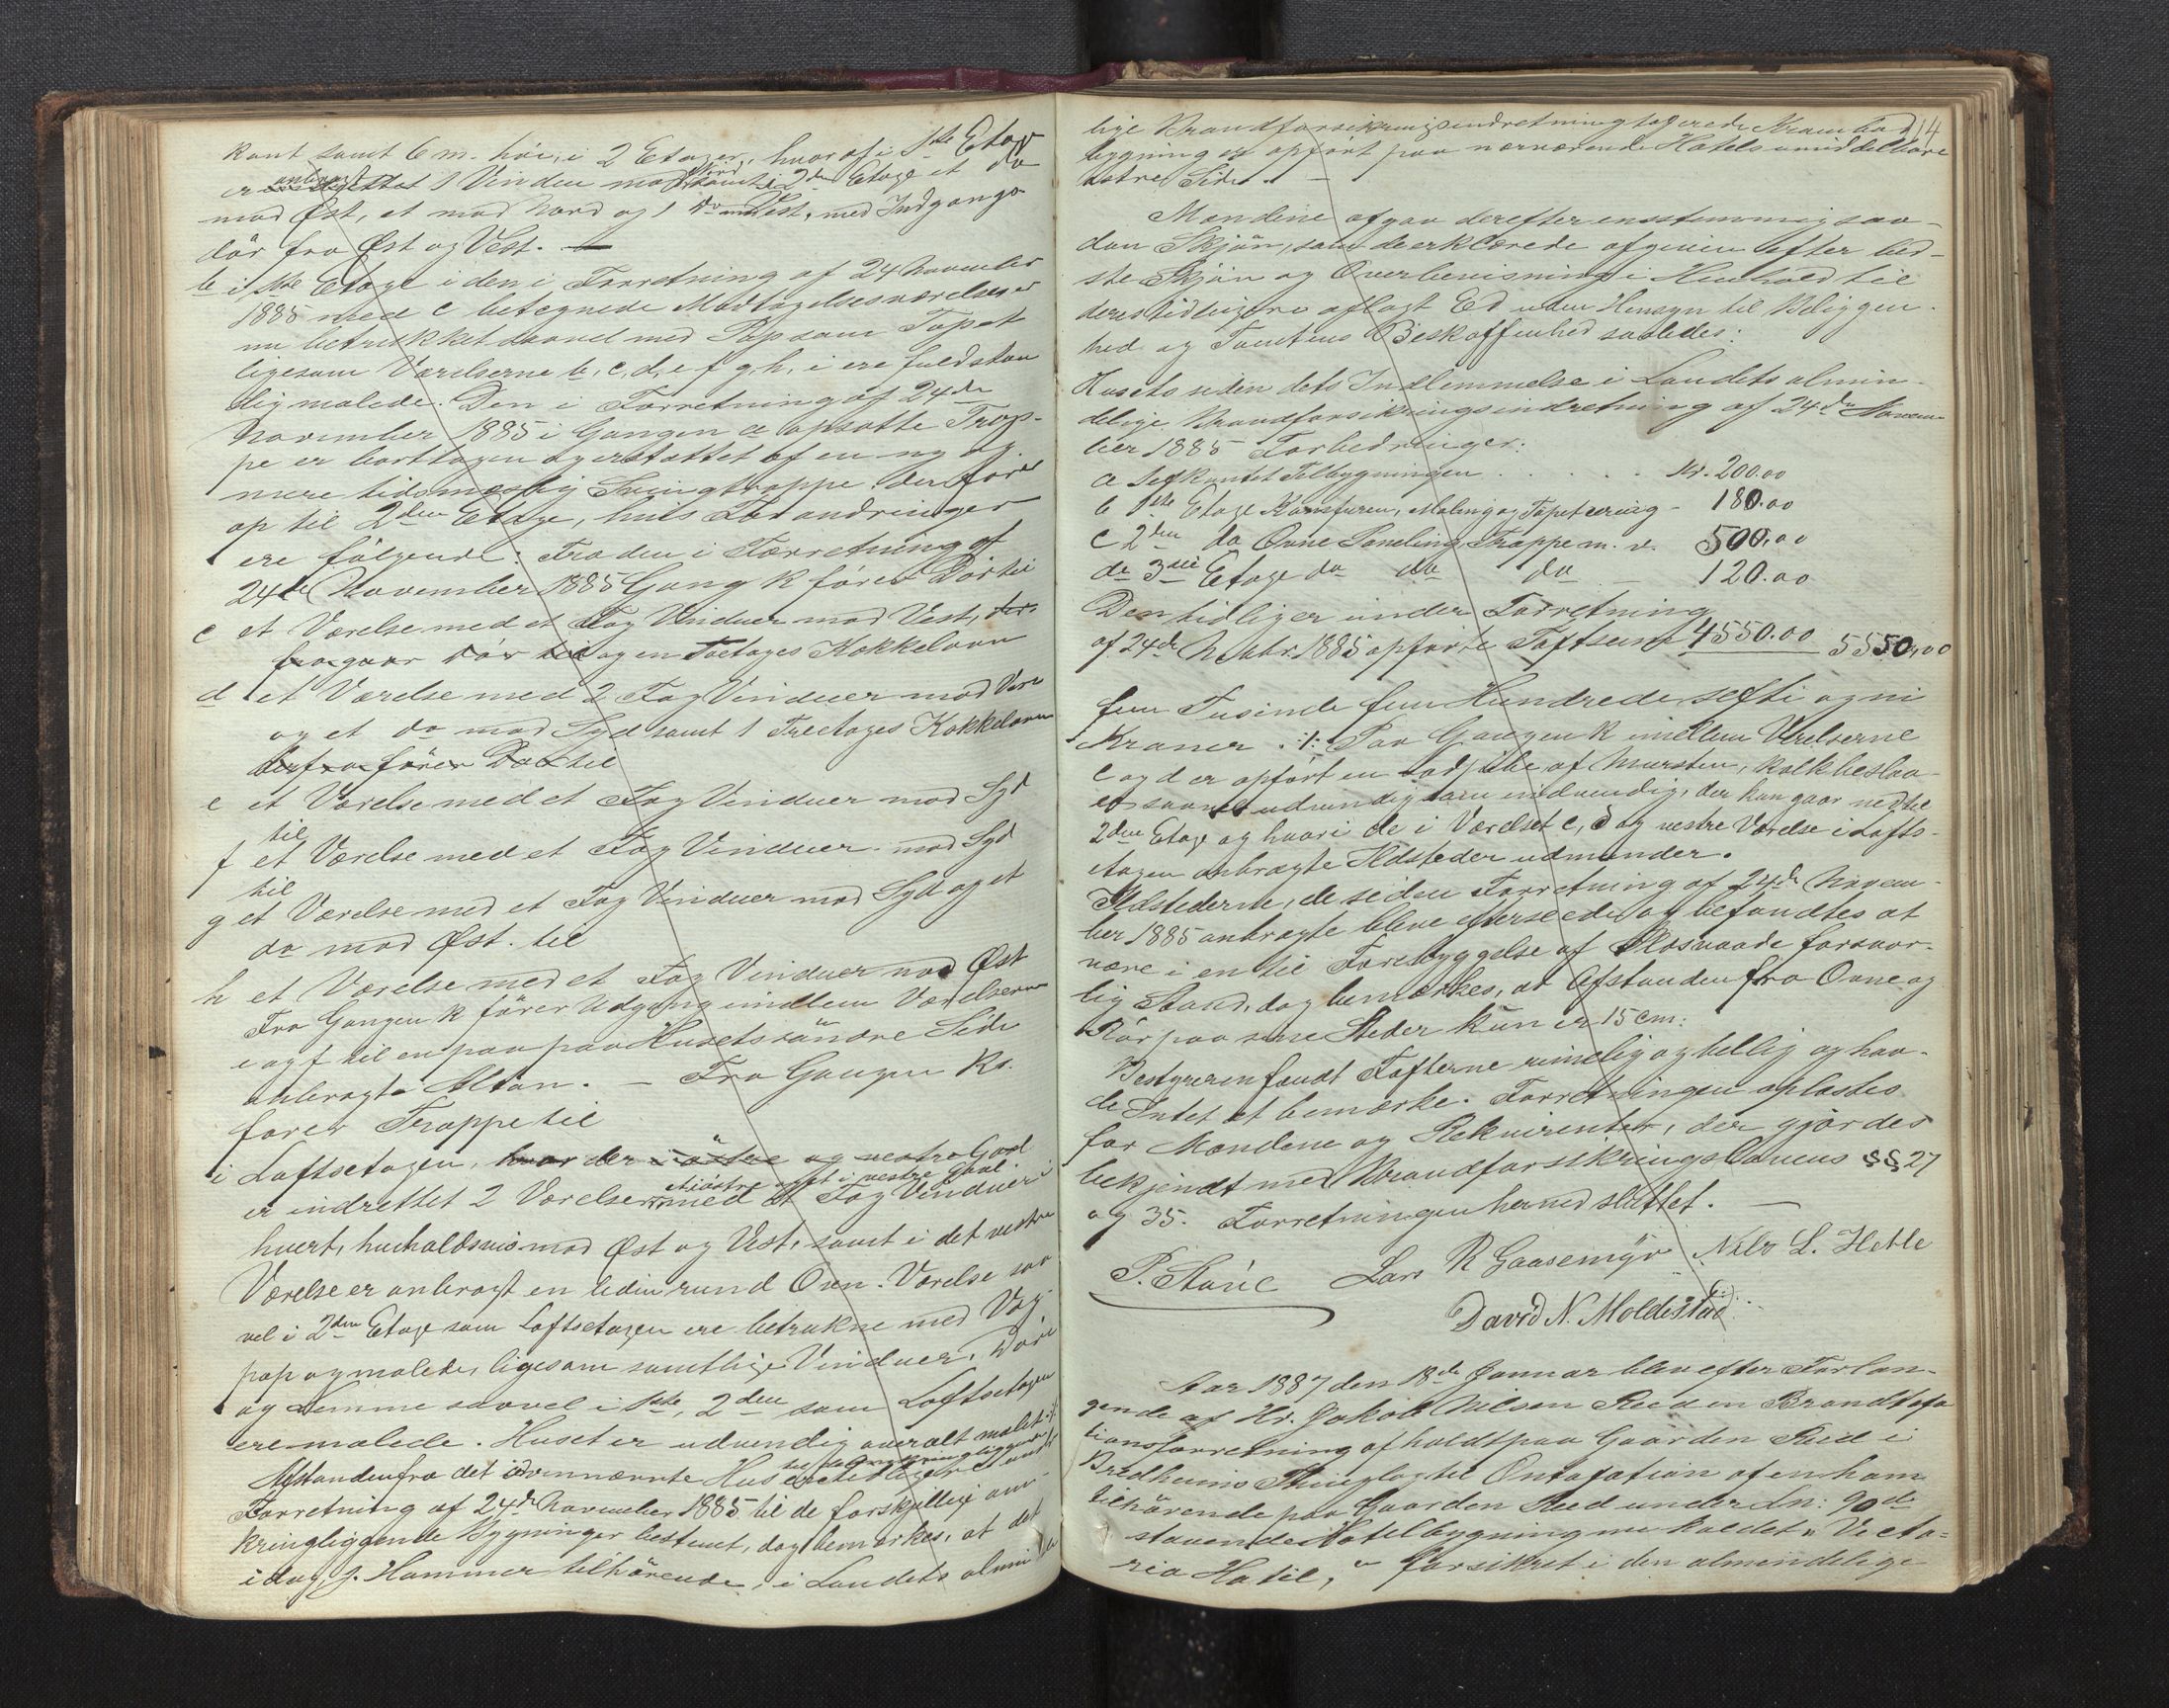 kant samt 6 m. høi, i 2 Etager, hvoraf i 1ste Etage
er anbragt 1 Vindue mod Nord samt i 2den Etage et do
mod Øst, et mod Nord og 1 do mod Vest, med Indgangs
dör fra Øst og Vest. —
b i 1ste Etage i den i Forretning af 24 November
1885 med c betegnede Modtagelsesværelse er
nu betrekket saavel med Pap som Tapet
ligesom Værelserne b, c, d, e f g, h, i ere fuldstæn
dig malede. Den i Forretning af 24de
November 1885 i Gangen a opsatte Trap-
pe er borttagen og erstattet af en ny og
mere tidsmæssig Svingtrappe der förer
op til 2den Etage, hvis Forandringer
ere fölgende: Fra den i Forretning af
24de November 1885 Gang k förer Dör til
c et Værelse med et Fag Vinduer mod Vest, der
fra gaar Dör til og en Toetages Kakkelovn
d et Værelse med 2 Fag Vinduer mod Vest
og et do mod Syd samt 1 Treetages Kakkelovn
derfra förer Dör til
e et Værelse med et Fag Vinduer mod Syd
til
f et Værelse med et Fag Vinduer mod Syd
til
g et Værelse med et Fag Vinduer mod Syd og et
do mod Øst. til
h et Værelse med et Fag Vinduer mod Øst
Fra Gangen k förer Udgang imellem Værelserne
e og f til en paa paa Husets söndre Side
anbragte Altan. — Fra Gangen k.
förer Trappe til
i Loftsetagen, hvor der i östre og vestre Gavl
et i östre og et i vestre Gavl.
er indrettet 2 Værelser med et Fag Vinduer i
hvert, henholdsvis mod Øst og Vest, samt i det vestre
Værelse er anbragt en liden rund Ovn. Værelse saa
vel i 2den Etage som Loftsetagen ere betrukne med Væg-
pap og malede, ligesom samtlige Vinduer, Döre
og Lemme saavel i 1ste, 2den som Loftsetagen
ere malede. Huset er udvendig overalt malet
Afstanden fra det ovennævnte Hus er
Forretning af 24de November 1885 til de forskjellige om-
kringliggende Bygninger bestemt, dog bemærkes, at det
i dag J. Hammer tilhörende, i Landets almin
14
lige Brandforsikringsindretning
bygning er opført paa nærværende Hotels umiddelbare
østre Side. —
Mændene afgav derefter enstemmig saa-
dan Skjön, som de erklærede afgiven efter bed-
ste Skjön og Overbevisning i Henhold til
deres tidligere aflagt Ed uden Hensyn til Beliggen-
hed og Tomtens Beskaffenhed saaledes:
Husets siden dets Indlemmelse i Landets almin-
delige Brandforsikringsindretning af 24de Novem-
ber 1885 Forbedringer:
a Sexkantet Tilbygningen . . . . Kr. 200.00
b 1ste Etage Malning og Tapetsering - 180.00
c 2den do Ovne Trappe m. v. 500.00
d 3die Etage do do do — 120.00
Den tidliger under Forretning
af 24de Novbr. 1885 opførte Taxtsum 4550.00 5550,00
fem Tusinde fem Hundrede og
Kroner ./: Paa Gangen k imellem Værelserne
c og d er opfört en af Mursten, kalkbeslaa-
et saavel udvendig som indvendig, der kun gaar ned til
2den Etage og hvori de i Værelset c, d og vestre Værelse i Lofts-
etagen anbragte Ildsteder udmunder.
Ildstederne, de siden Forretning af 24de Novem-
ber 1885 anbragte bleve efterseede og befandtes at
være i en til Forebyggelse af Ildsvaade forsvar-
lig Stand, dog bemærkes, at Afstanden fra Ovne og
Rör paa sine Steder kun er 15 cm:
Bestyreren fandt Taxterne rimelig og billig og hav-
de Intet at bemærke. Forretningen oplæstes
for Mændene og Rekvirenten, der gjördes
bekjendt med Brandforsikringslovens §§ 27
og 35. Forretningen hermed sluttet. —
P. Starie Lars R Gaasemyr Nils L. Hetle
David N. Moldestad
Aar 1887 den 18de Januar blev efter Forlan-
gende af Hr. Jakob Nilsen Reed en Brandtaxa
tionsforretning afholdt paa Gaarden Reed i
Bredheims Thinglag til Omtaxation af en ham
tilhörende paa Gaarden Reed under Ln: 90de
staaende Hotelbygning nu kaldet "Victo=
ria Hotel," forsikret i den almindelige